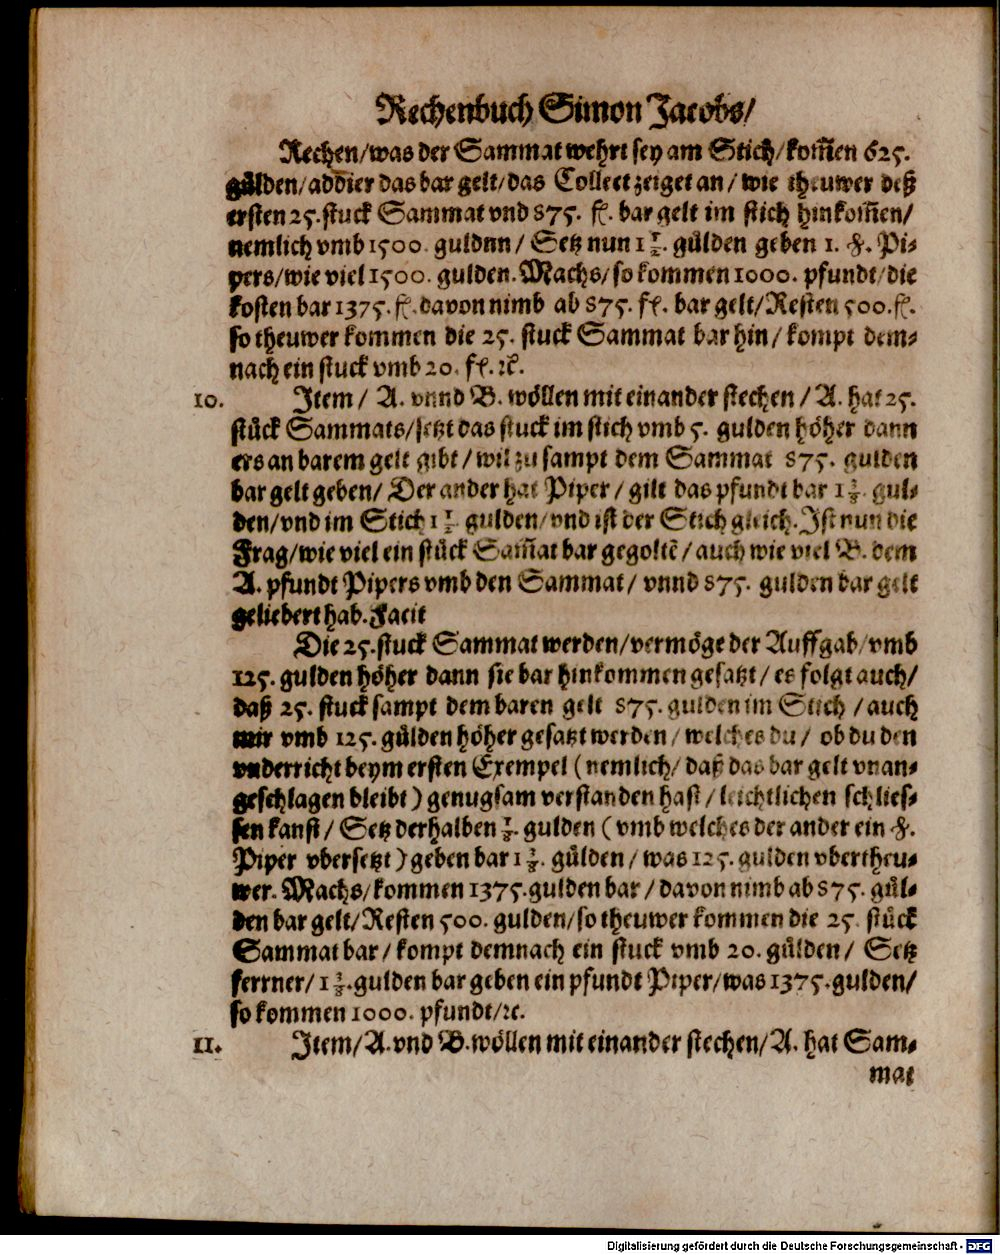 Rechenbuch Simon Jacobs/
Rechen/was der Sammat wehrt sey am Stich/kom̃en 625.
gůlden/addier das bar gelt/das Collect zeiget an/ wie theuwer deß
ersten 25.stuck Sammat vnd 875. fl. bar gelt im stich hinkom̃en/
nemlich vmb 1500. guldnn/ Setz nun 1 1/2. gůlden geben 1. ℔. Pi-
pers/wie viel 1500. gulden. Machs/so kommen 1000. pfundt/die
kosten bar 1375. fl. davon nimb ab 875. fl. bar gelt/Resten 500. fl.
so theuwer kommen die 25. stuck Sammat bar hin/ kompt dem-
nach ein stuck vmb 20. fl. ꝛc.
10. Item/ A. vnnd B. wöllen mit einander stechen/ A. hat 25.
stůck Sammats/setzt das stuck im stich vmb 5. gulden höher dann
ers an barem gelt gibt/wil zu sampt dem Sammat 875. gulden
bar gelt geben/ Der ander hat Piper/ gilt das pfundt bar 1 3/8. gul-
den/vnd im Stich 1 1/2. gulden/vnd ist der Stich gleich. Ist nun die
Frag/wie viel ein stůck Sam̃at bar gegoltẽ/auch wie viel B. dem
A. pfundt Pipers vmb den Sammat/ vnnd 875. gulden bar gelt
geliebert hab. Facit
Die 25.stuck Sammat werden/vermöge der Auffgab/vmb
125. gulden höher dann sie bar hinkommen gesatzt/es folgt auch/
daß 25. stuck sampt dem baren gelt 875. gulden im Stich/auch
mir vmb 125. gůlden höher gesatzt werden/welches du/ ob du den
vnderricht beym ersten Exempel (nemlich/daß das bar gelt vnan-
geschlagen bleibt) genugsam verstanden hast/leichtlichen schlies-
sen kanst/ Setz derhalben 1/8. gulden (vmb welches der ander ein ℔.
Piper vbersetzt) geben bar 1 3/8. gůlden/was 125. gulden vbertheu-
wer. Machs/kommen 1375.gulden bar/davon nimb ab 875. gůl-
den bar gelt/Resten 500. gulden/so theuwer kommen die 25. stůck
Sammat bar/kompt demnach ein stuck vmb 20. gůlden/ Setz
ferrner/1 3/8.gulden bar geben ein pfundt Piper/was 1375.gulden/
so kommen 1000. pfundt/ꝛc.
11. Item/A.vnd B.wöllen mit einander stechen/A. hat Sam-
mat
Digitalisierung gefördert durch die Deutsche Forschungsgemeinschaft - DFG